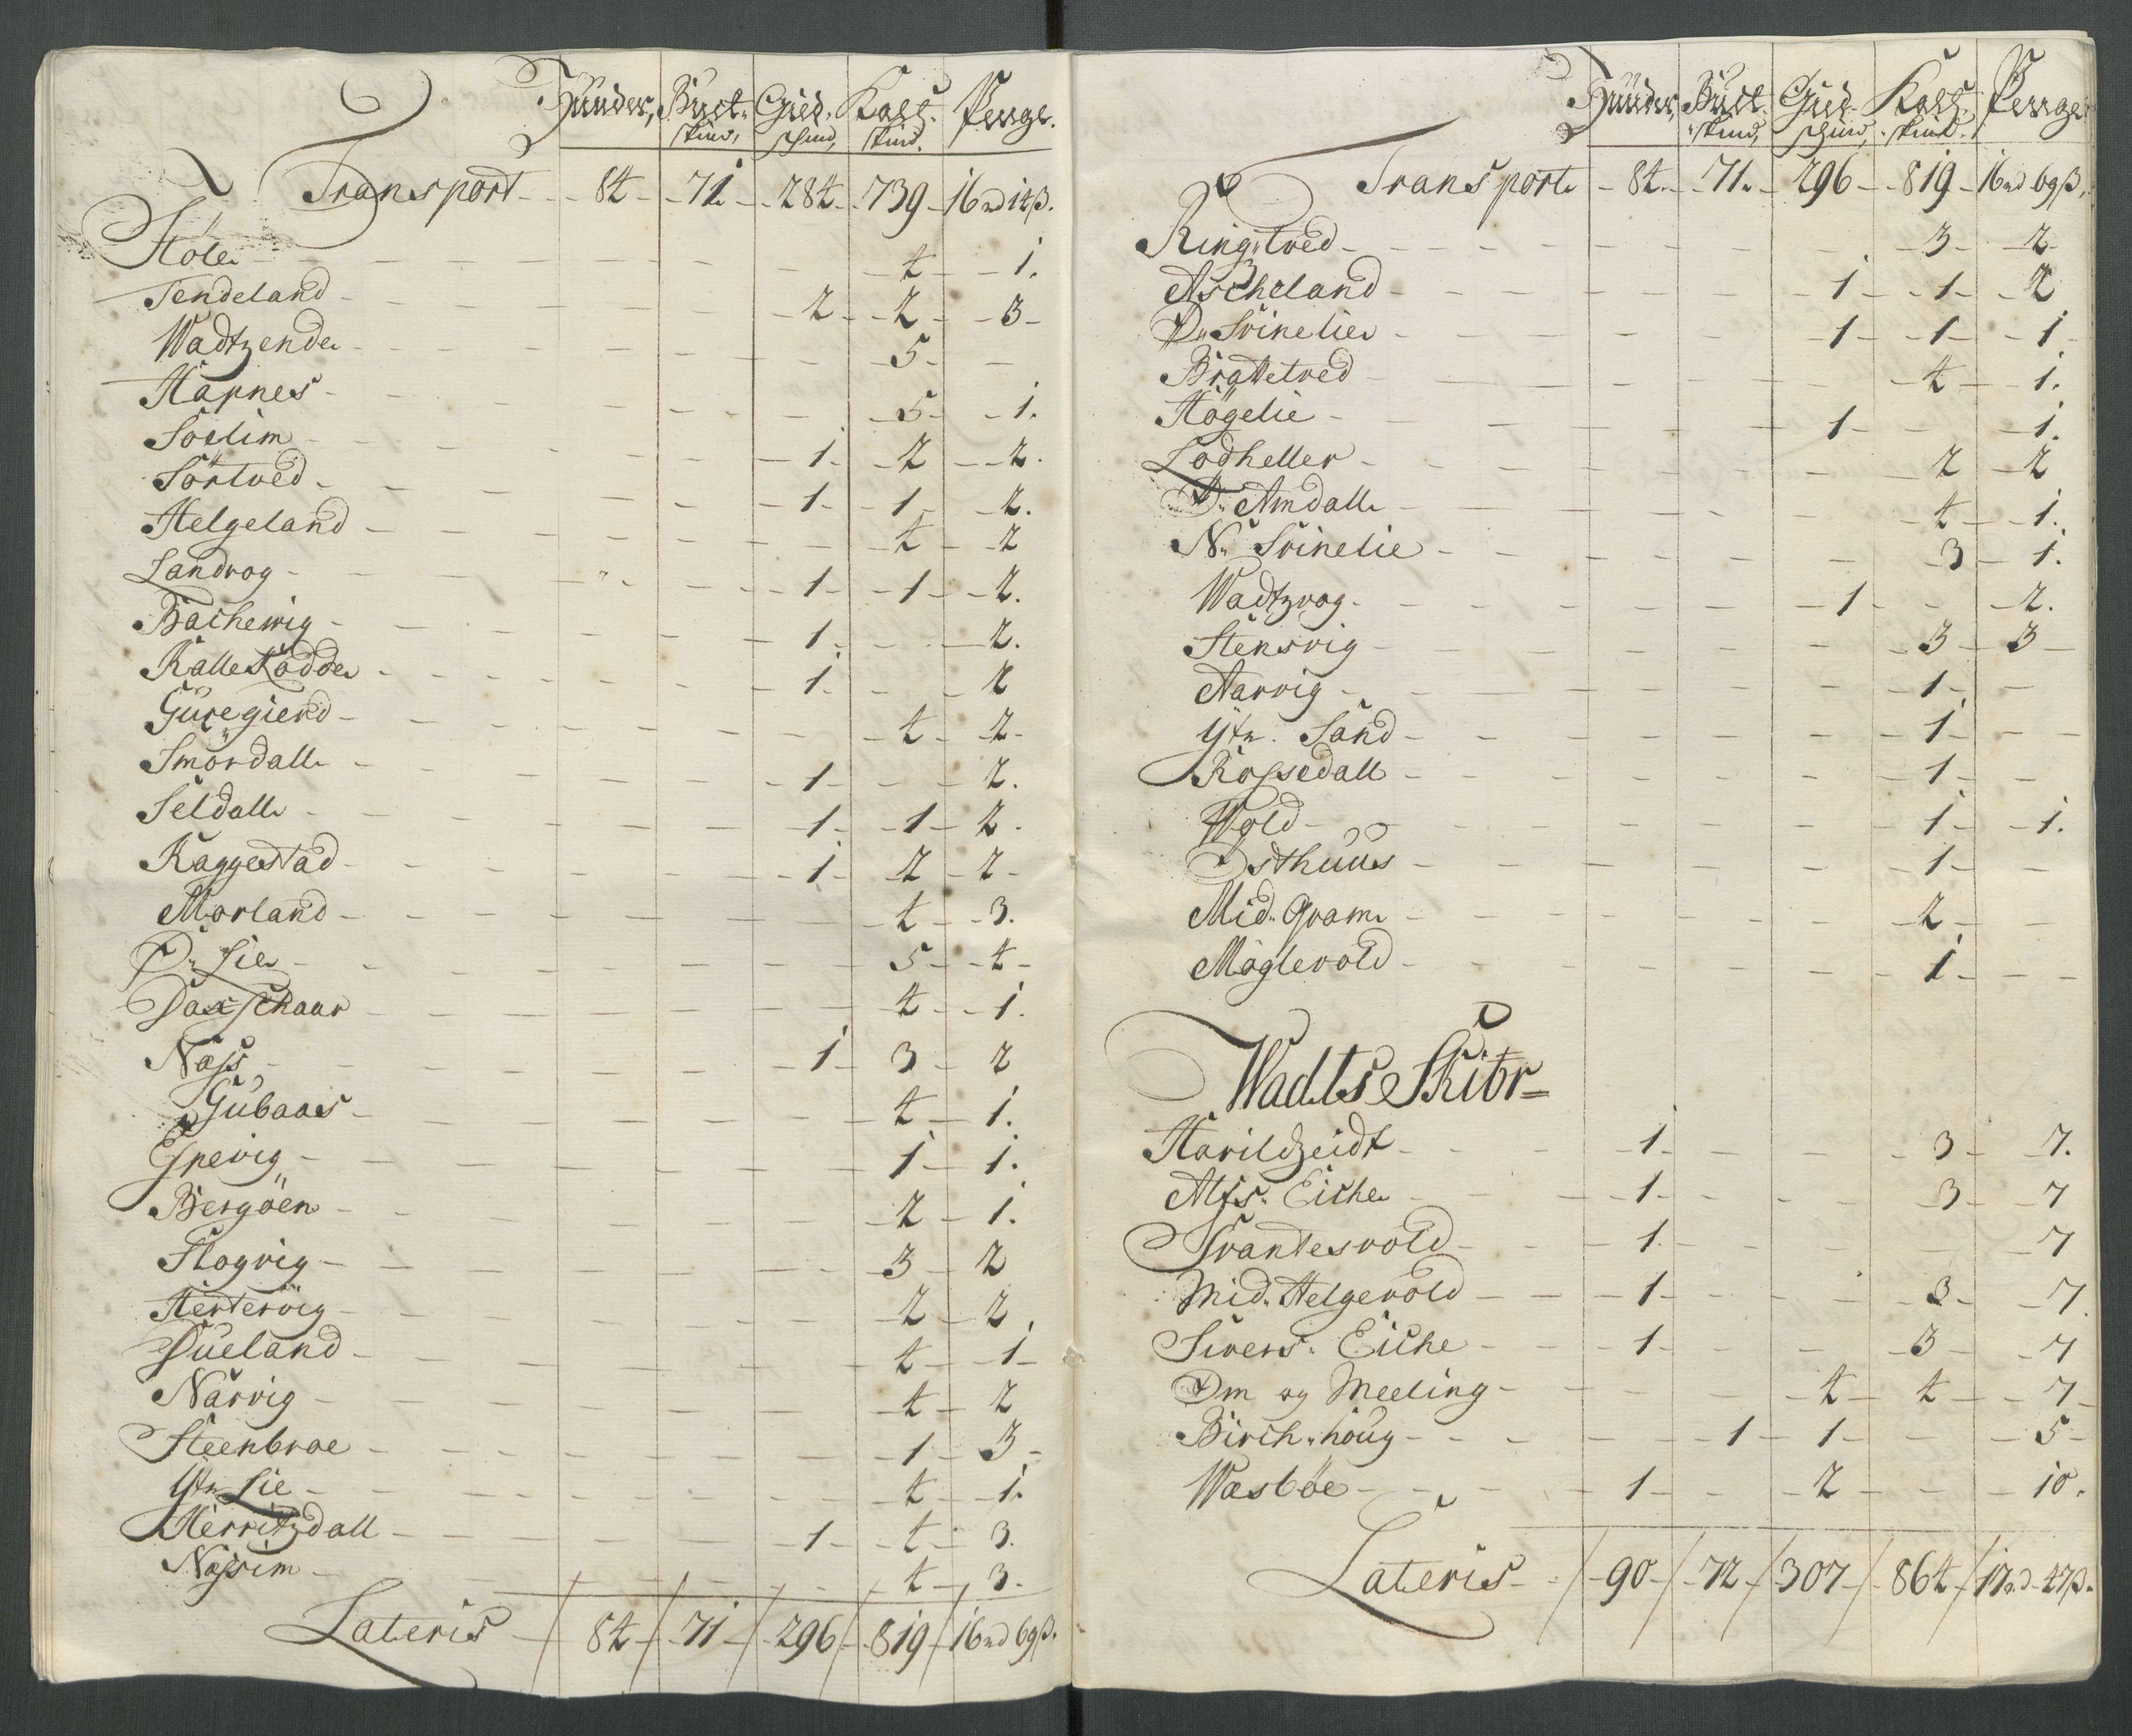 Hüuder, Buct. Gied. Kalf. Penge.
skind, schind, skind.
Transport 84 71 284 739 16 rd 14 β.
Höle 4 1.
Tendeland 2 2 3
Wadtzende 5
Hapnes 5 1.
Soelim 1 2 2.
Sörtved 1 1 2.
Helgeland 4 2
Landvog 1 1 2.
Bachewig 1 2.
Kalleködde 1 2
Güregierd 4 2
Smördall 1 2.
Seldall 1 1 2.
Kaggestad 1 2 2
Morland 4 3.
D: Lie 5 4
Daxschaar 4 1.
Næss 1 3 2
Gübaas 4 1.
Espevig 1 1.
Bergöen 2 1.
Slogvig 3 2
Hertervig 2 2.
Dueland 4 1
Narvig 4 2
Steenbroe 1 3
Ytr Lie 4 1.
Herritzdall 1 4 3.
Nessim 4 3.
Lateris 84 71 296 819 16 rd 69 β.
Hüuder, Buct. Gied. Kalf. Penge
skind, schind, skind.
Transport 84. 71. 296 819 16 rd 69 β.
Ringstved 3 2
Ascheland 1 1 2
D: Svinelie 1 1 1
Brattetved 4 1.
Högelie 1 1.
Lodheller 2 2
D: Amdall 4 1.
N: Svinelie 3 1.
Wadtzvog 1 2.
Stensvig 3 3
Aarvig 1
Ytr. Sand 1
Rossedall 1
Wold 1 1.
Østhuus 1
Mid: Qvam 2
Möglevold 1
Wadts Skibr
Harildzeidt 1 3 7.
Alfs: Eiche 1 3 7
Svantesvold 1 7
Mid: Helgevold 1 3 7.
Sivers: Eiche 1 3 7
Øm og Meeling 4 4 7
Birch: houg 1 1 5
Wasböe 1 2 10.
Lateris 90 72 307 864 17 rd 47 β.